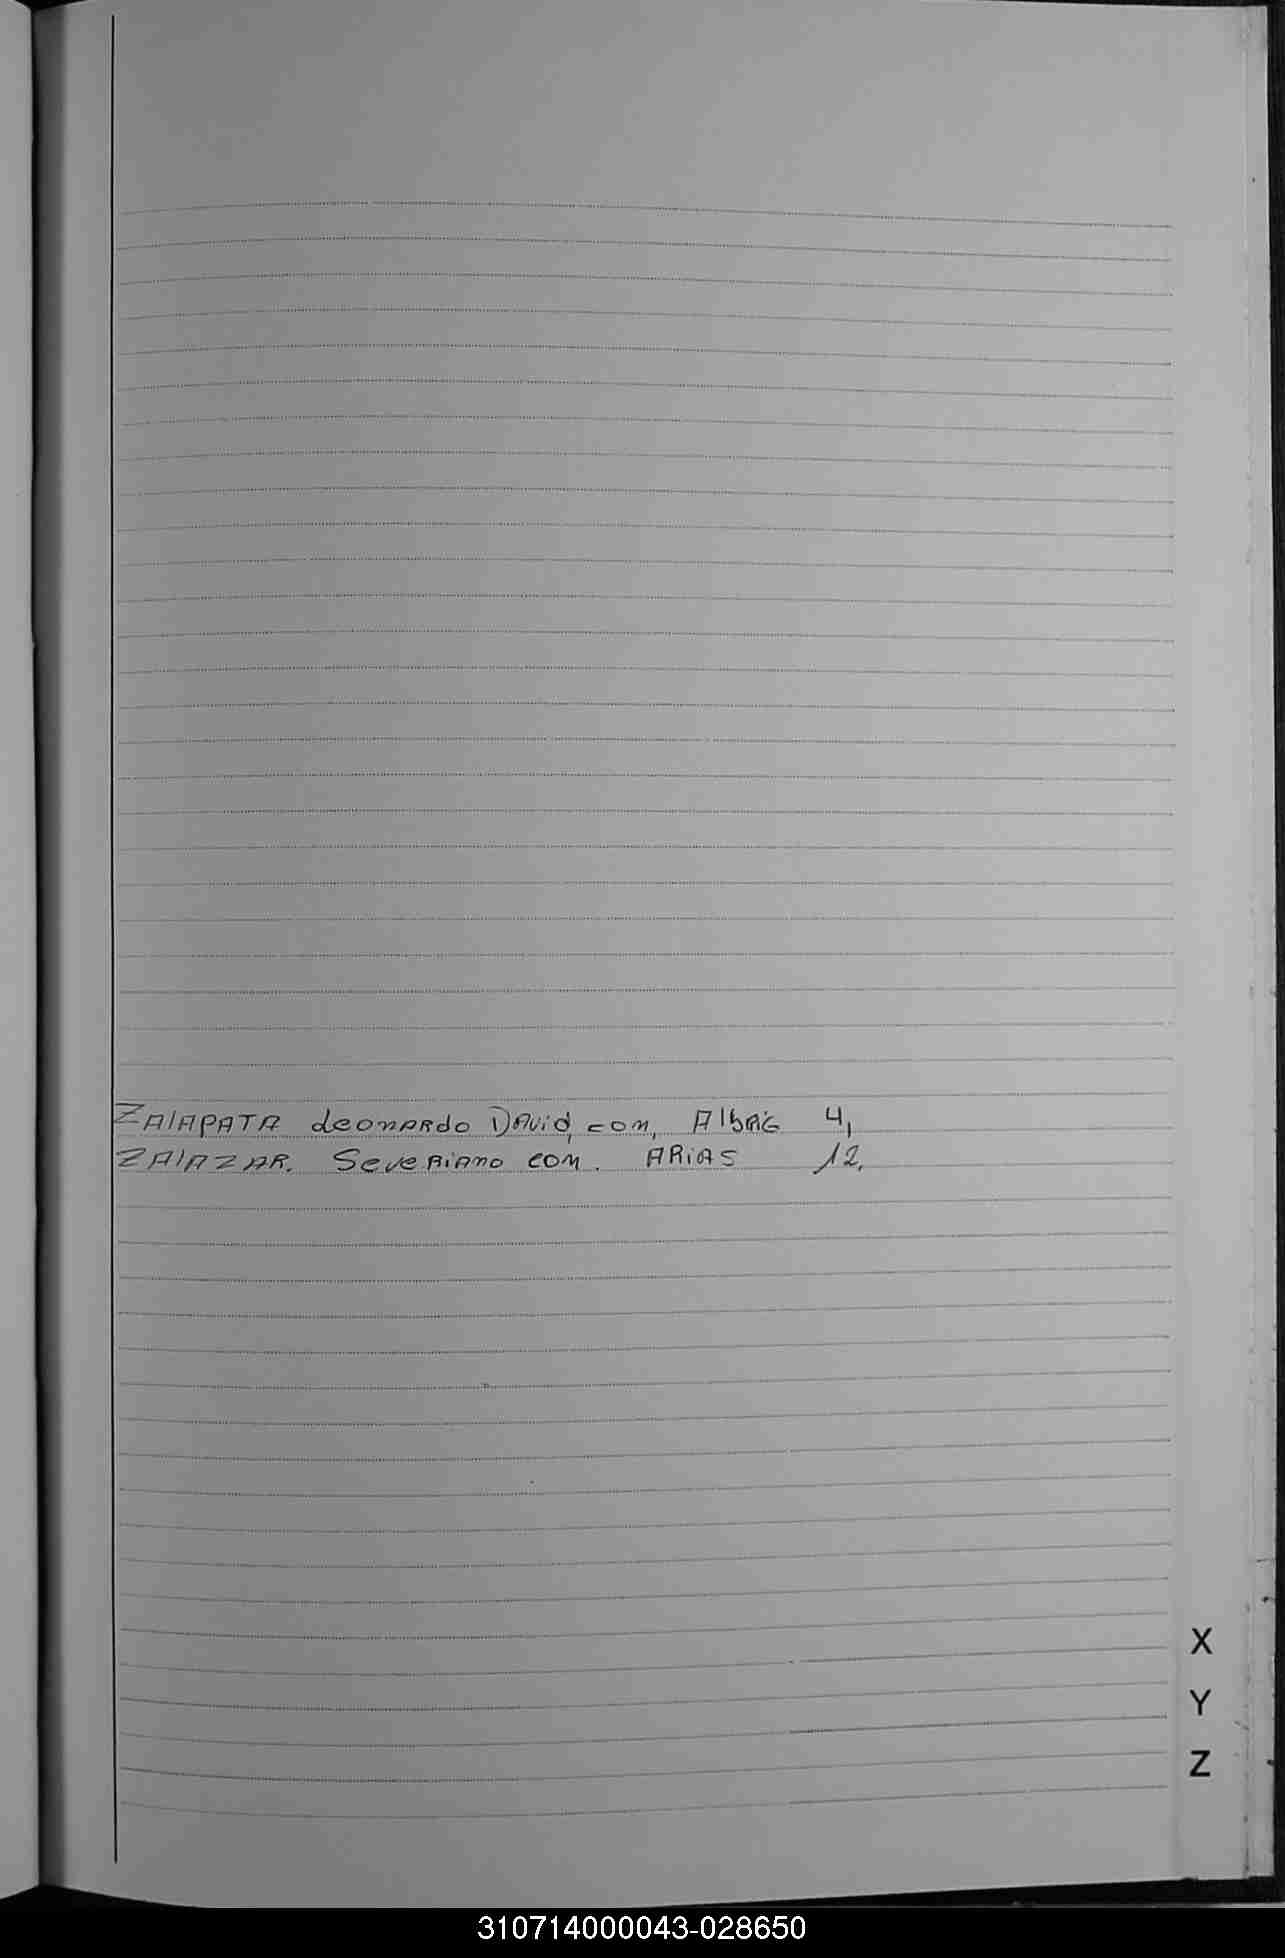 ZAlAPATA Leonardo David, con, AlbAG 4,
ZAlAZAR. Severiano con. ARiAS 12,
X
Y
Z
310714000043-028650